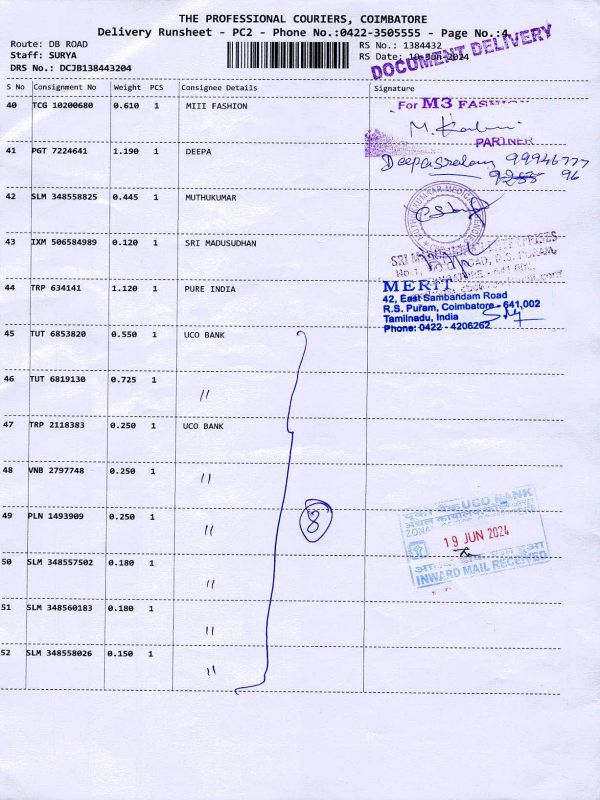 THE PROFESSIONAL COURIERS, COIMBATORE
Delivery Runsheet - PC2 - Phone No.:0422-3505555 - Page No.:4
Route: DB ROAD
Staff: SURYA
DRS No.: DCJB138443204
RS No.: 1384432
RS Date: 19-Jun-2024
DOCUMENT DELIVERY
S No Consignment No Weight PCS Consignee Details Signature
40 TCG 10200680 0.610 1 MIII FASHION
For M3 FASHION
PARTNER
41 PGT 7224641 1.190 1 DEEPA
99946777
96
42 SLM 348558825 0.445 1 MUTHUKUMAR
43 IXM 506584989 0.120 1 SRI MADUSUDHAN
44 TRP 634141 1.120 1 PURE INDIA
MERIT
42, East Sambandam Road
R.S. Puram, Coimbatore - 641,002
Tamilnadu, India
Phone: 0422 - 4206262
45 TUT 6853820 0.550 1 UCO BANK
46 TUT 6819130 0.725 1 "
47 TRP 2118383 0.250 1 UCO BANK
48 VNB 2797748 0.250 1 "
49 PLN 1493909 0.250 1 "
8
UCO BANK
19 JUN 2024
INWARD MAIL RECEIVED
50 SLM 348557502 0.180 1 "
51 SLM 348560183 0.180 1 "
52 SLM 348558026 0.150 1 "